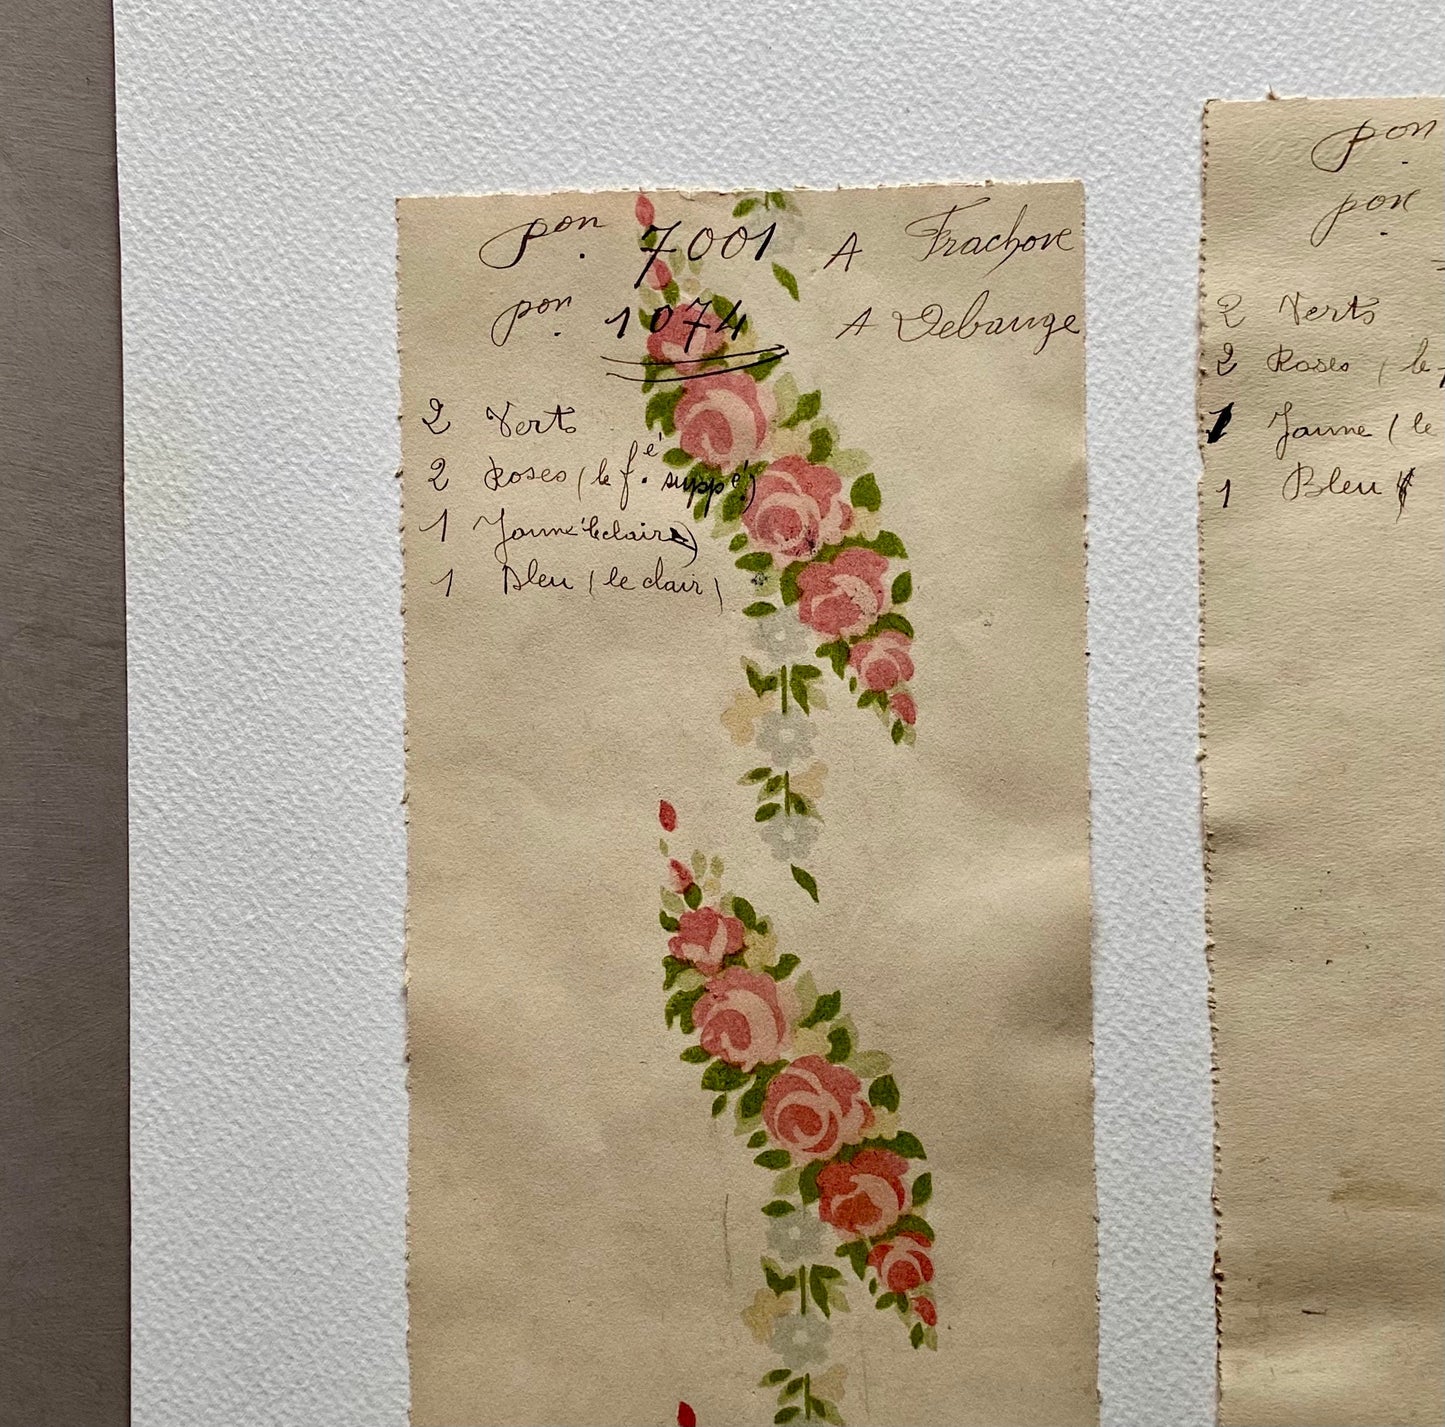 pon. 7001 A Frachon
pon. 1074 A Debauge
2 Verts
2 Roses (le fé. suppé.)
1 Jaune (le clair)
1 Bleu (le clair)
pon.
pon.
2 Verts
2 Roses (le
1 Jaune (le
1 Bleu (